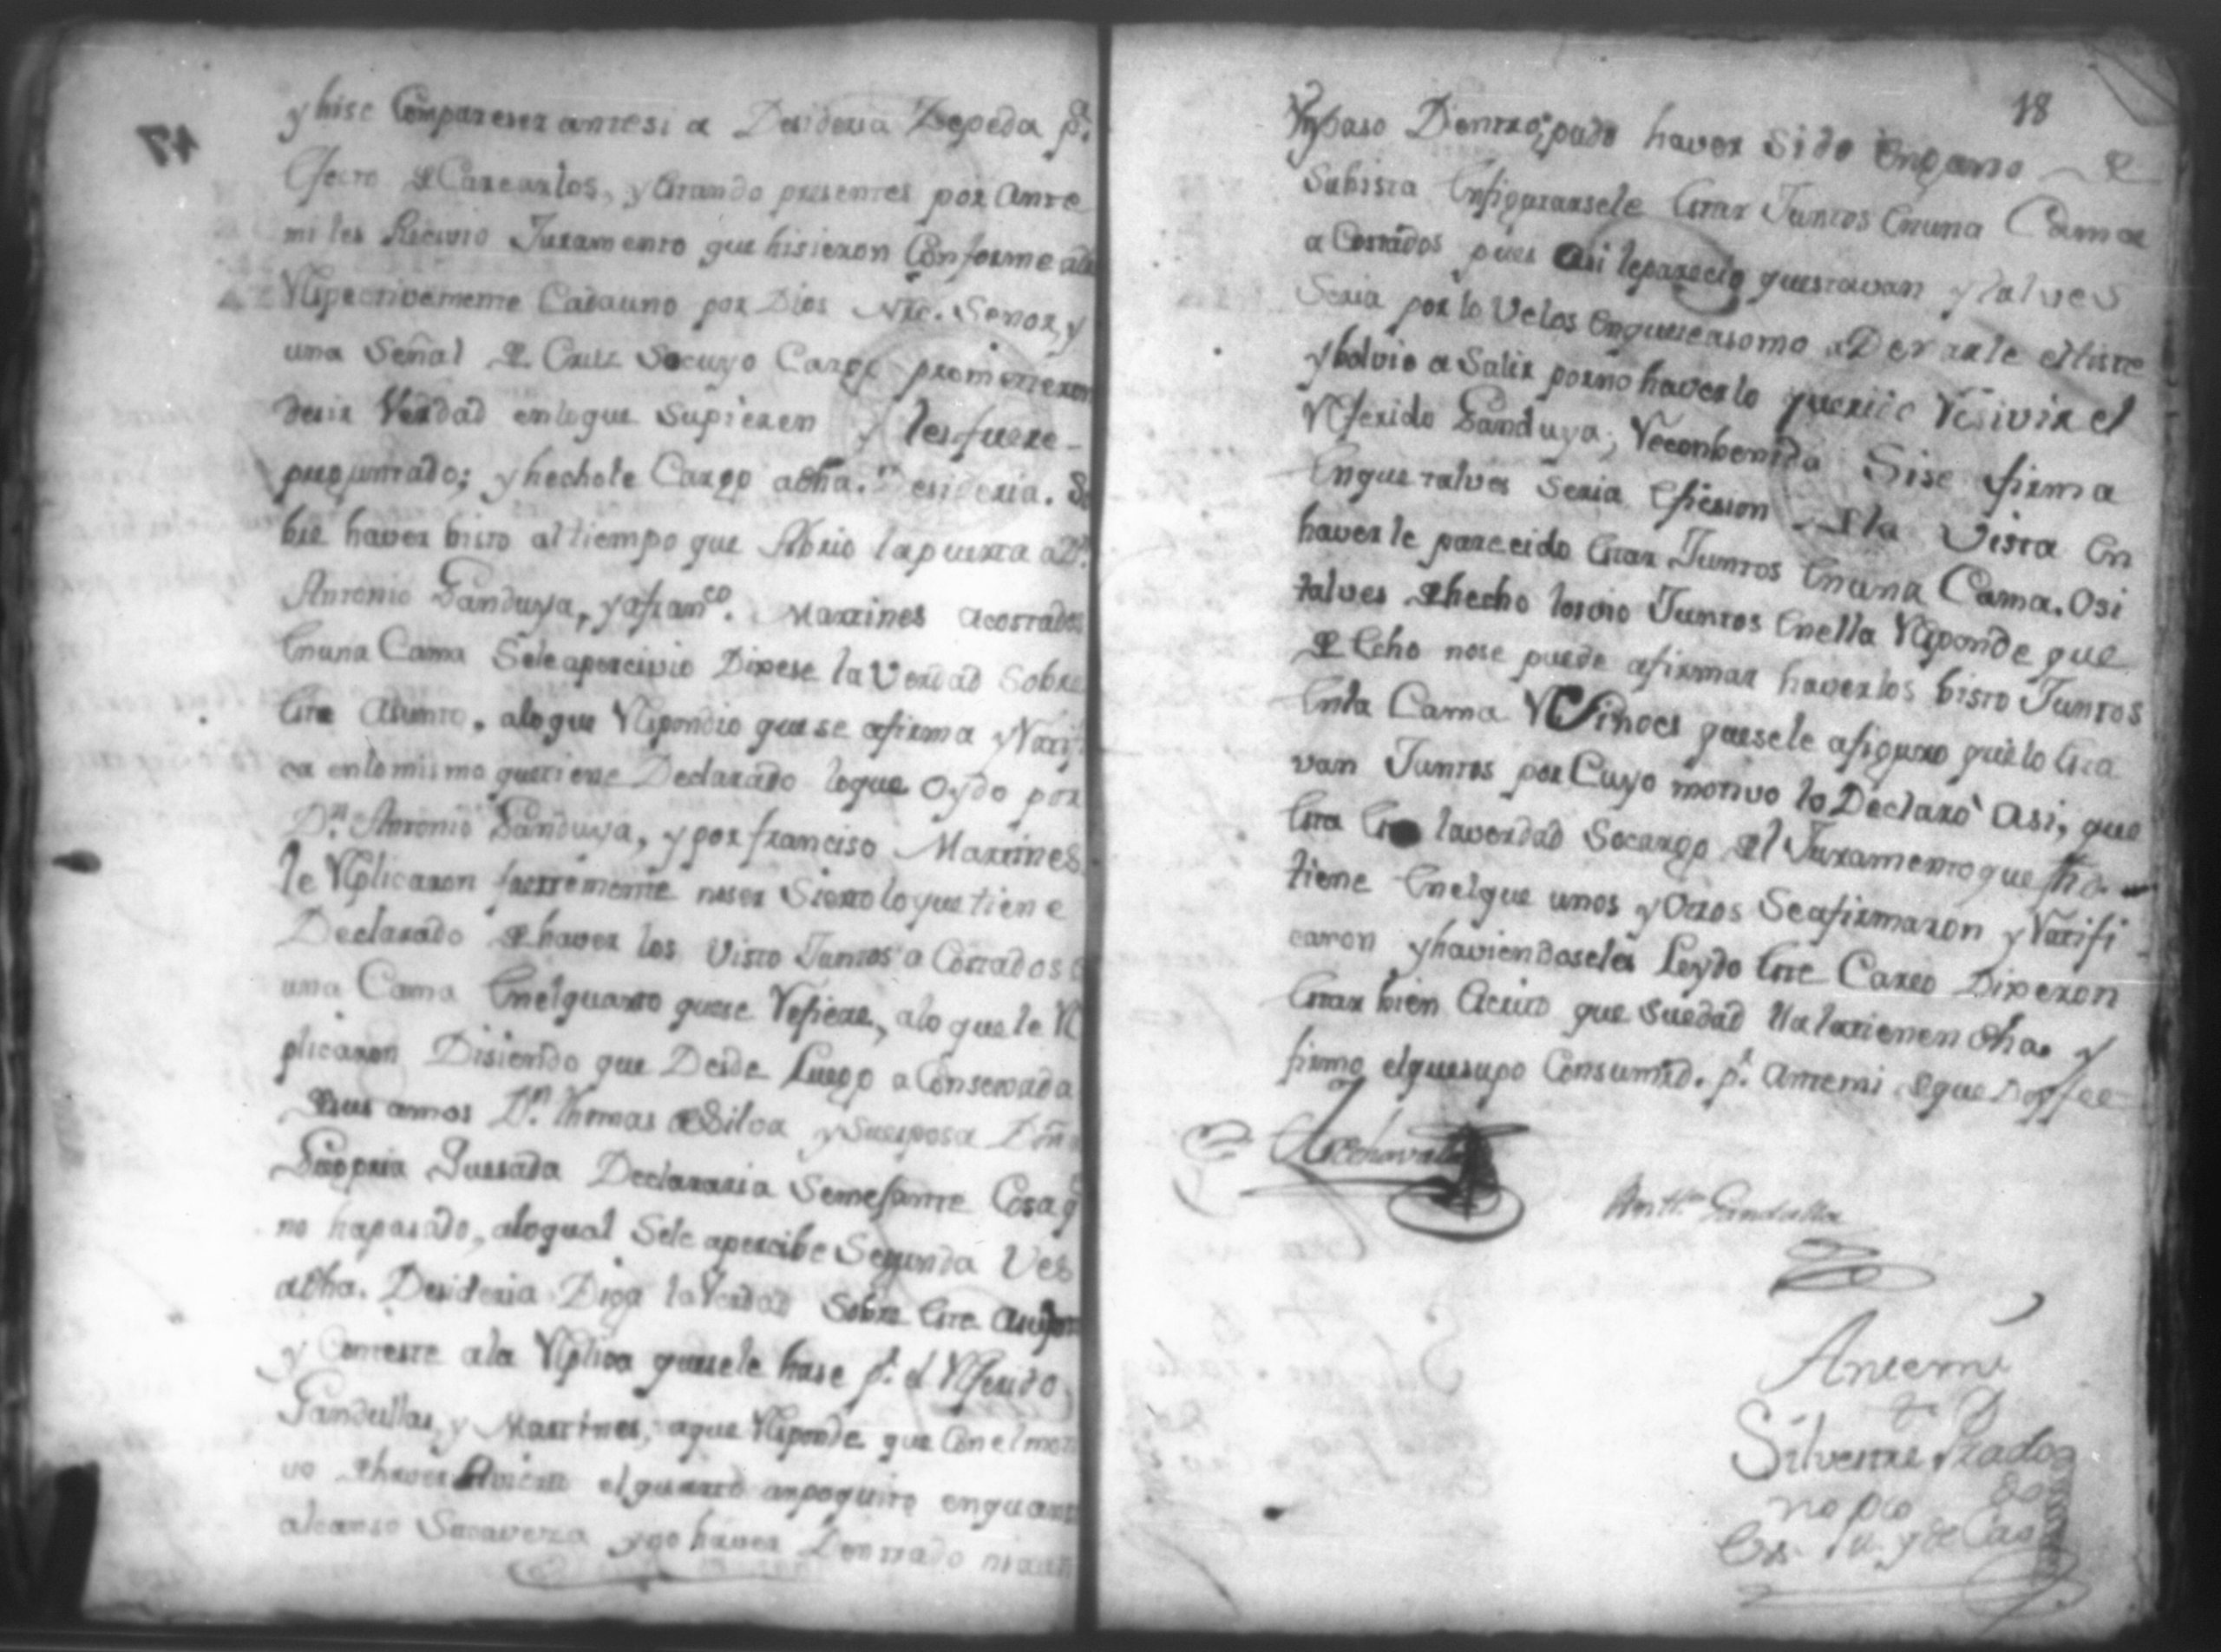 y hise Compareser antesi a Desideria Zepeda p.ª
Efecto de Carearlos, y Estando presentes por Ante
mi les Recivio Juramento que hisieron Conforme adro
Respectivamente Cadauno por Dios Ntro. Señor, y
una Señal de Cruz Socuyo Cargo prometieron
desir Verdad enloque Supieren y les fuere-
preguntado; y hechole Cargo adha. Desideria. So
bre haver bisto altiempo que Abrio lapuerta aDn.
Antonio Ganduya, y afranco. Martines acostados
Enuna Cama Seleapercivio Dixese la Verdad Sobre
Este Asunto, aloque Respondio quese afirma y Ratifi
ca enlomismo quetiene Declarado loque Oydo por
Dn. Antonio Ganduya, y por francisco Martines
le Replicaron fuertemente noser Sierto loque tiene
Declarado de haver los Visto Juntos a Costados e
una Cama Enelquarto quese Refiere, alo que le Re
plicaron Disiendo que Desde Luego a Consexada
desus amos Dn. Thomas deSilva y Suesposa Doña
Declararia Semejante Cosa q
no hapasado, aloqual Sele apercibe Segunda Ves
adha. Desideria Diga laVerdad Sobre Este Asunto
y Conteste ala Replica quesele hase pr. el Referido
Gandullas, y Martines, aque Responde que Conelmoti
vo dehaver Avierto elquarto unpoquito enquanto
alcanso Sucaveza y no haver Dentrado niaun
18
Unpaso Dentro; pudo haver Sido Engaño de
Subista Enfigurarsele Estar Juntos Enuna Cama
a Costados pues asi leparecio questavan y talves
Seria porlo Velos Enqueseasomo a Dexarle
y bolvio a Salir porno haverlo querido Resivir el
Referido Ganduya; Reconbenida Sise firma
Enque talves Seria de la Vista En
haverle parecido Estar Juntos Enuna Cama. Osi
talves dehecho losvio Juntos Enella Responde que
de Echo nose puede afirmar haverlos bisto Juntos
Enla Cama quesele afiguro quelo Esta
van Juntos por Cuyo motivo lo Declaró Asi, que
Esta Es laverdad Socargo del Juramento que fho
tiene Enelque unos y Otros Seafirmaron y Ratifi
caron y haviendoseles Leydo Este Careo Dixeron
Estar bien Escrito que Suedad Yalatienen dha. y
firmo elquesupo Consumrd. pr. Antemi deque Doy fee
Antto. Gandulla
Antemi
Silvestre Prado